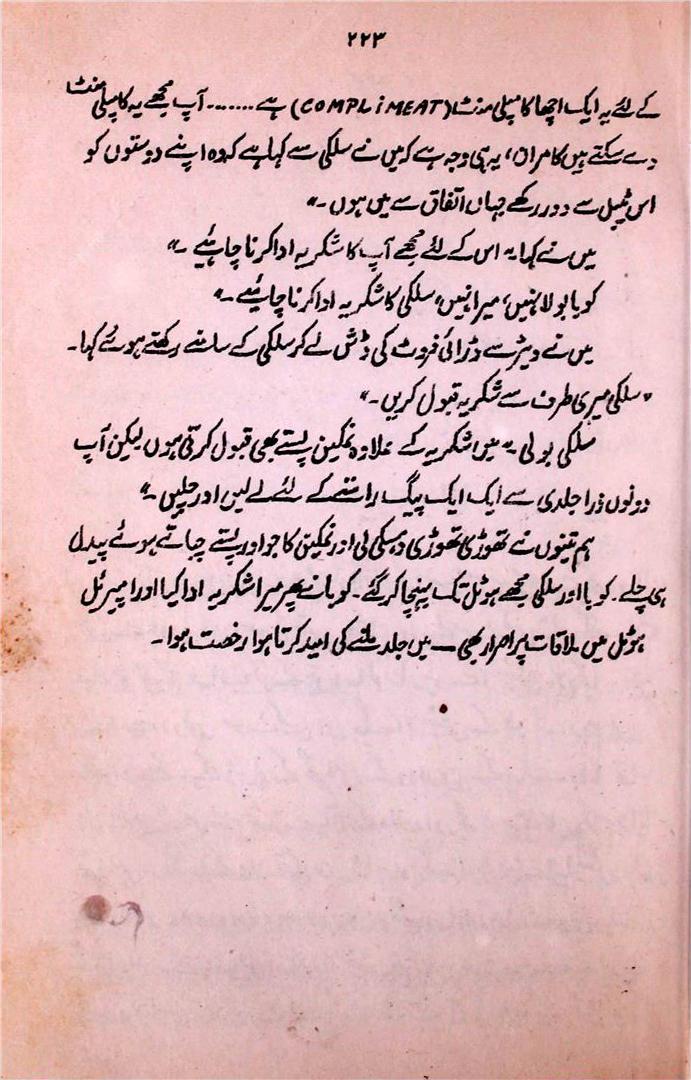 ۲۲۳
کے لئے یہ ایک اچھا کامپلی منٹ (COMPLiMEAT) ہے ....... آپ مجھے یہ کامپلی منٹ
دے سکتے ہیں کامران، یہ ہی وجہ ہے کہ میں نے سلکی سے کہا ہے کہ وہ اپنے دوستوں کو
اس ٹیبل سے دور رکھے جہاں اتفاق سے میں ہوں ۔"
میں نے کہا ۔" اس کے لئے مجھے آپ کا شکریہ ادا کرنا چاہئیے ۔"
کوبا بولا نہیں، میرا نہیں، سلکی کا شکریہ ادا کرنا چاہئیے ۔"
میں نے ویٹر سے ڈرائی فروٹ کی ڈش لے کر سلکی کے سامنے رکھتے ہوئے کہا ۔
"سلکی میری طرف سے شکریہ قبول کریں ۔"
سلکی بولی ۔" میں شکریہ کے علاوہ نمکین پستے بھی قبول کرتی ہوں لیکن آپ
دونوں ذرا جلدی سے ایک ایک پیگ راستے کے لئے لے لیں اور چلیں ۔"
ہم تینوں نے تھوڑی تھوڑی وہسکی لی اور نمکین کاجو اور پستے چباتے ہوئے پیدل
ہی چلے ۔ کوبا اور سلکی مجھے ہوٹل تک پہنچا کر گئے ۔ کوبا نے پھر میرا شکریہ ادا کیا اور امپیرئل
ہوٹل میں ملاقات پر اصرار بھی — میں جلد ملنے کی امید کرتا ہوا رخصت ہوا ۔